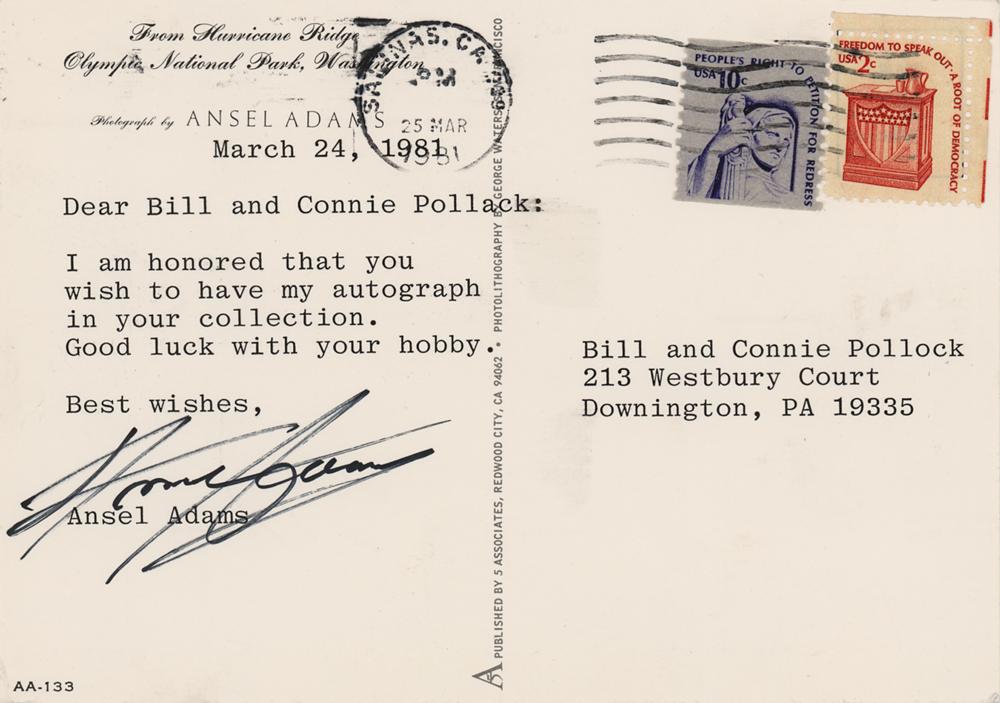 From Hurricane Ridge
Olympic National Park, Washington
Photograph by ANSEL ADAMS
March 24, 1981
Dear Bill and Connie Pollack:
I am honored that you
wish to have my autograph
in your collection.
Good luck with your hobby.
Best wishes,
Ansel Adams
Ansel Adams
AA-133
PUBLISHED BY 5 ASSOCIATES, REDWOOD CITY, CA 94062 • PHOTOLITHOGRAPHY BY GEORGE WATERS, SAN FRANCISCO
SALINAS, CA
PM
25 MAR
1981
PEOPLE'S RIGHT TO PETITION FOR REDRESS
USA 10c
FREEDOM TO SPEAK OUT-A ROOT OF DEMOCRACY
USA 2c
Bill and Connie Pollock
213 Westbury Court
Downington, PA 19335